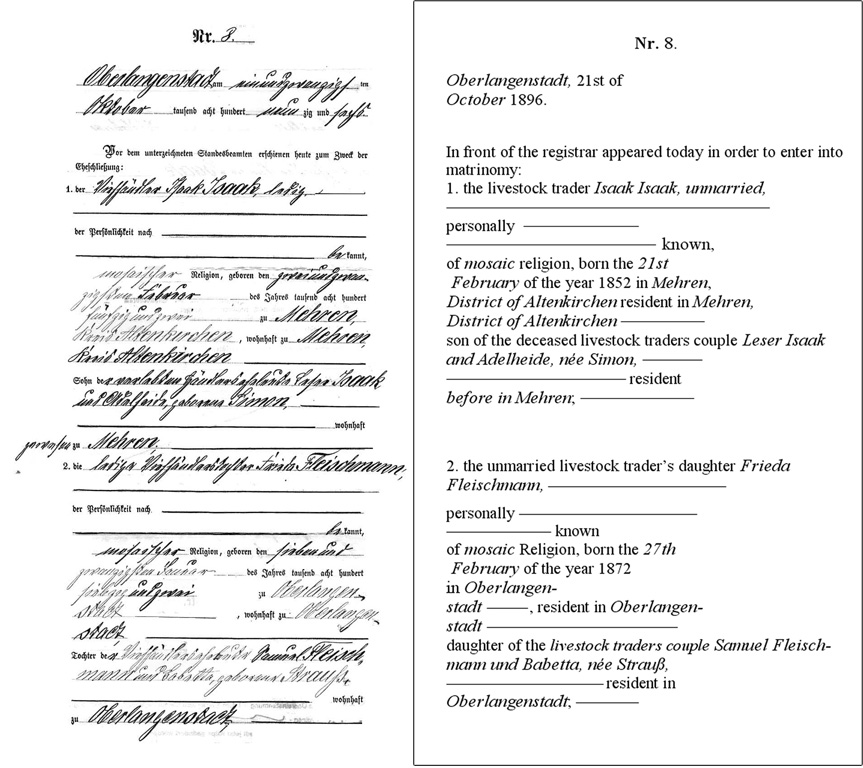 Nr. 8.
Oberlangenstadt am einundzwanzigsten
Oktober tausend acht hundert neunzig und sechs.
Vor dem unterzeichneten Standesbeamten erschienen heute zum Zweck der
Eheschließung:
1. der Viehhändler Isaak Isaak, ledig
der Persönlichkeit nach
bekannt,
mosaischer Religion, geboren den
zigsten Februar des Jahres tausend acht hundert
fünfzig und zwei zu Mehren,
Kreis Altenkirchen, wohnhaft zu Mehren,
Kreis Altenkirchen
Sohn der verlebten Händlerseheleute Leser Isaak
und Adelheide, geborene Simon,
wohnhaft
gewesen zu Mehren,
2. die ledige Viehhändlerstochter Frieda Fleischmann,
der Persönlichkeit nach
bekannt,
mosaischer Religion, geboren den sieben und
zwanzigsten des Jahres tausend acht hundert
siebzig und zwei zu Oberlangen-
stadt, wohnhaft zu Oberlangen-
stadt
Tochter der Viehhändlerseheleute Samuel Fleisch-
mann und Babetta, geborene Strauß,
wohnhaft
zu Oberlangenstadt
Nr. 8.
Oberlangenstadt, 21st of
October 1896.
In front of the registrar appeared today in order to enter into
matrinomy:
1. the livestock trader Isaak Isaak, unmarried,
personally
known,
of mosaic religion, born the 21st
February of the year 1852 in Mehren,
District of Altenkirchen resident in Mehren,
District of Altenkirchen
son of the deceased livestock traders couple Leser Isaak
and Adelheide, née Simon,
resident
before in Mehren;
2. the unmarried livestock trader’s daughter Frieda
Fleischmann,
personally
known
of mosaic Religion, born the 27th
February of the year 1872
in Oberlangen-
stadt , resident in Oberlangen-
stadt
daughter of the livestock traders couple Samuel Fleisch-
mann und Babetta, née Strauß,
resident in
Oberlangenstadt;